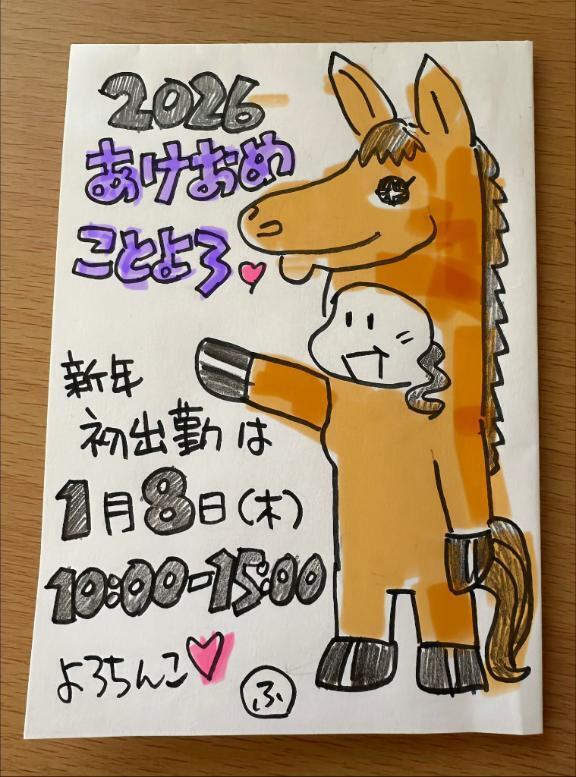 2026
あけおめ
ことよろ
新年
初出勤は
1月8日(木)
10:00-15:00
よろちんこ
ふ